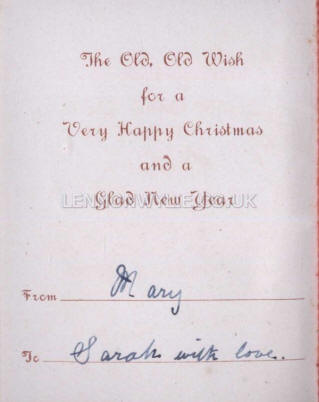 The Old, Old Wish
for a
Very Happy Christmas
and a
Glad New Year
From Mary
To Sarah with love.